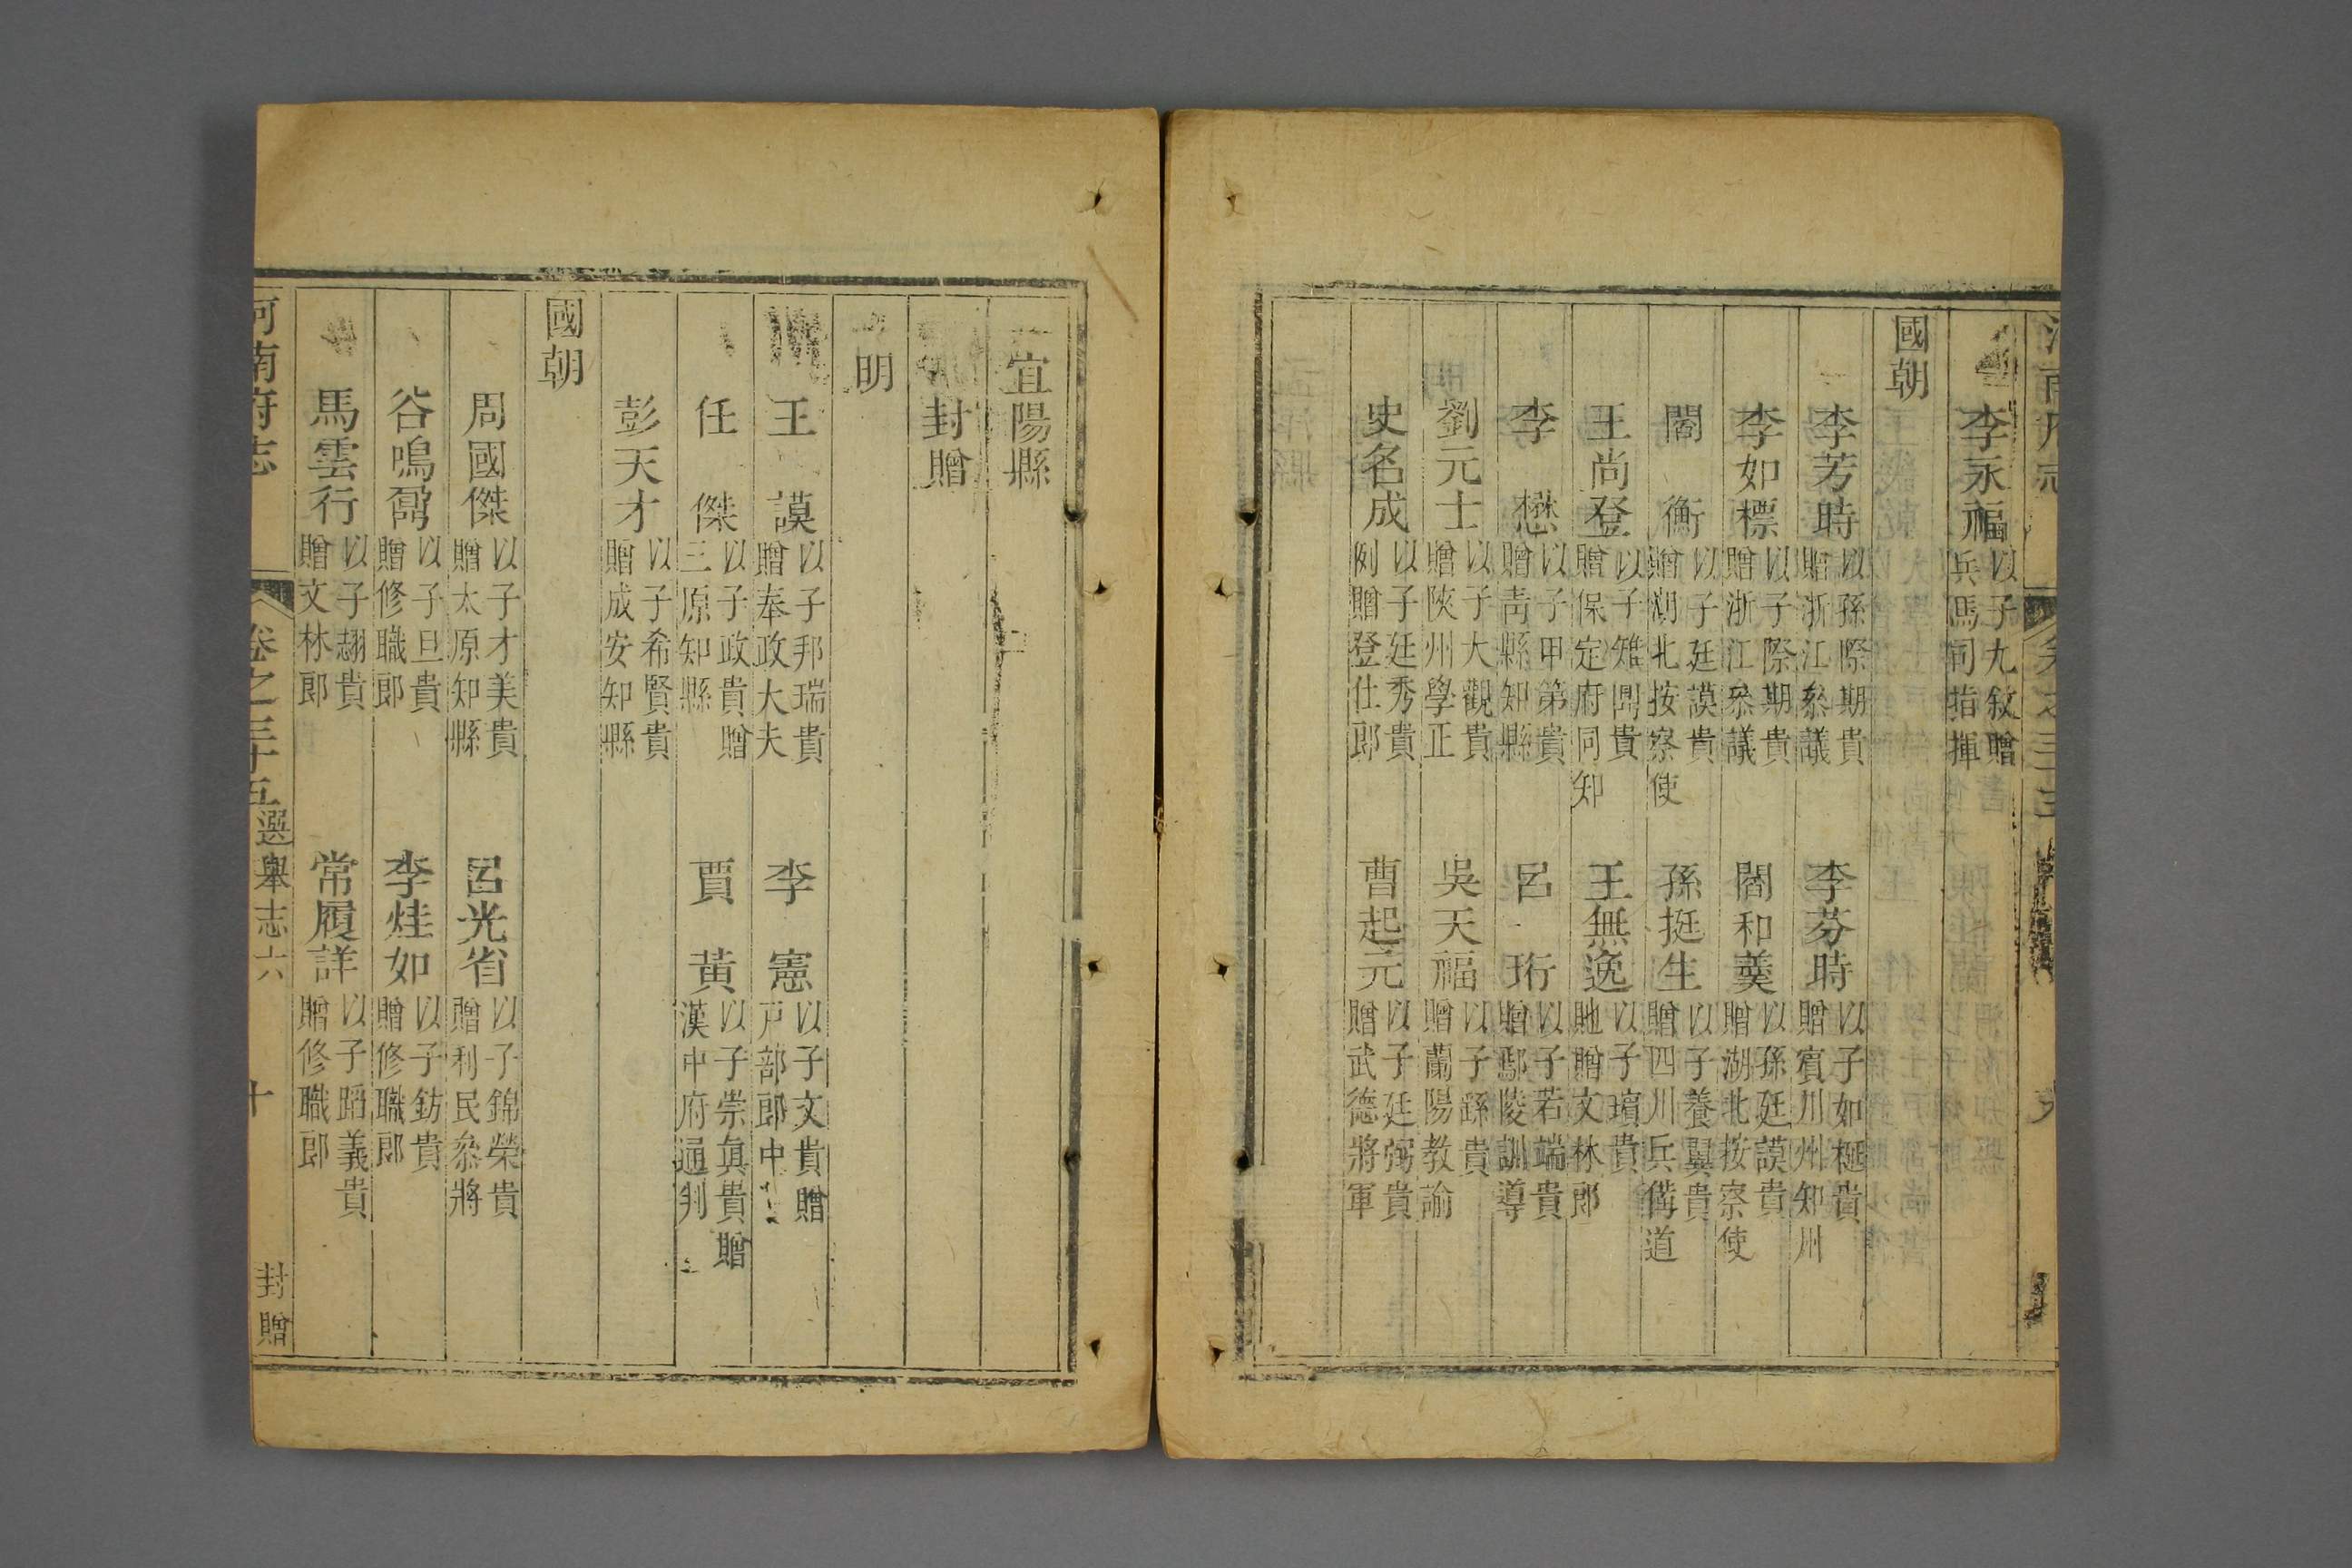 李永福 以子九敘贈兵馬同指揮
國朝
李芳時 以孫際期貴贈浙江叅議 李芬時 以子如梴貴贈賓川州知州
李如標 以子際期貴贈浙江叅議 閻和羹 以孫廷謨貴贈湖北按察使
閻衡 以子廷謨貴贈湖北按察使 孫挺生 以子養翼貴贈四川兵備道
王尚登 以子雉貴贈保定府同知 王無逸 以子璸貴貤贈文林郎
李懋 以子甲第貴贈靑縣知縣 呂珩 以子若端貴贈鄢陵訓導
劉元士 以子大觀貴贈陜州學正 吳天福 以子繇貴贈蘭陽教諭
史名成 以子廷秀貴例贈登仕郎 曹起元 以子廷弼貴贈武德將軍
宜陽縣
封贈
明
王謨 以子邦瑞貴贈奉政大夫 李憲 以子文貴贈戸部郎中
任傑 以子政貴贈三原知縣 賈黃 以子崇眞貴贈漢中府通判
彭天才 以子希賢貴贈成安知縣
國朝
周國傑 以子才美貴贈太原知縣 呂光省 以子錦榮貴贈利民叅將
谷鳴鼐 以子旦貴贈修職郎 李烓如 以子鈁貴贈修職郎
馬雲行 以子翽貴贈文林郎 常履詳 以子蹈義貴贈修職郎
河南府志 卷之三十五 選舉志六 十 封贈